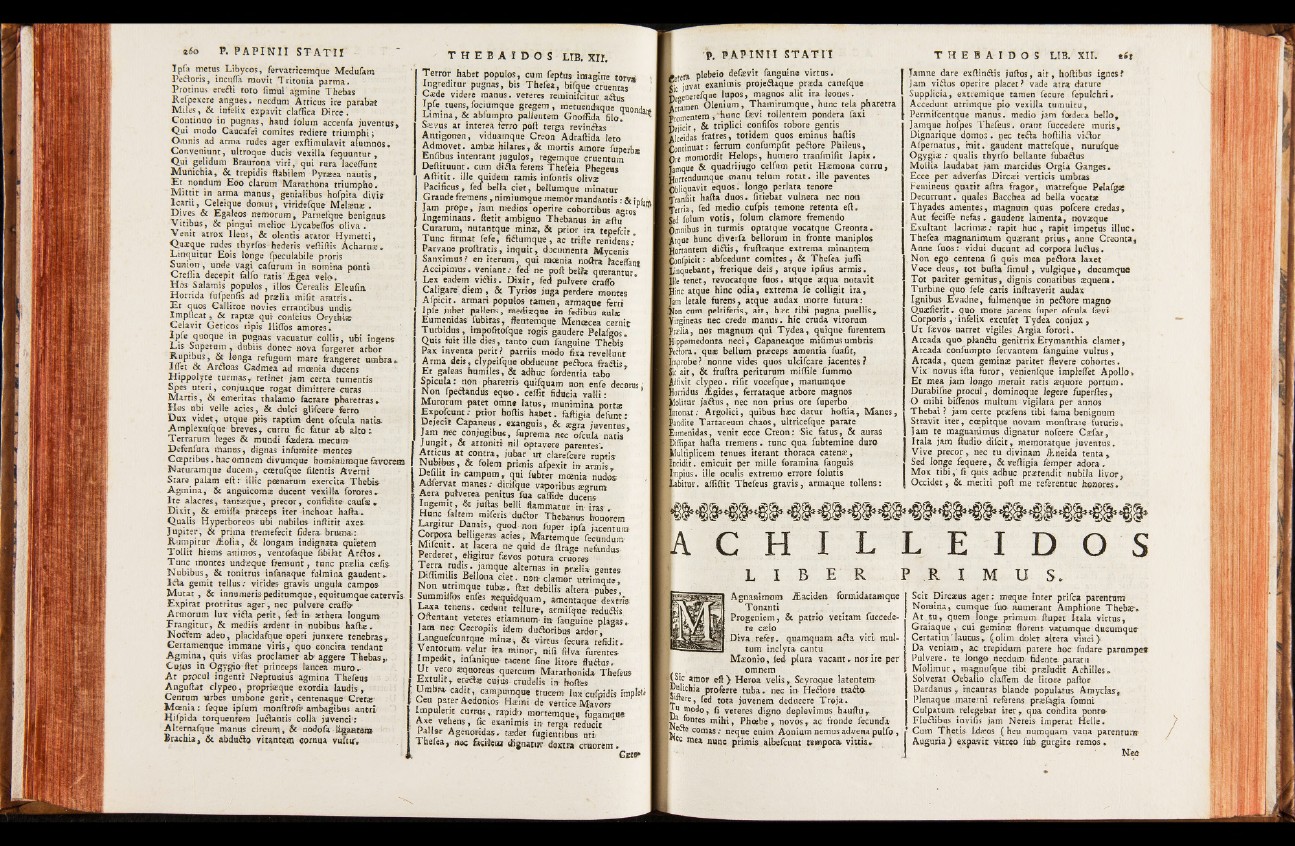 260 P. PAPINII STATII
Ipsa metus Libycos, servatricemque Medusam
Pectoris, incussa movit Tritonia parma.
Protinus erecti toto simul agmine Thebas
Respexere angues. necdum Atticus ire parabat
Miles, & infelix expavit classica Dirce.
Continuo in pugnas, haud solum accensa juventus,
Qui modo Caucasei comites rediere triumphi;
Omnis ad arma rudes ager exstimulavit alumnos.
Conveniunt, ultroque ducis vexilla sequuntur,
Qui gelidum Braurona viri, qui rura lacessunt
Munichia, & trepidis stabilem Pyræea nautis,
Et nondum Eoo clarum Marathona triumpho.
Mittit in arma manus, genialibus hospita divis
Icarii, Celeique domus, viridesque Melænæ.
Dives & Egaleos nemorum, Parnesque benignus
Vitibus, & pingui melior Lycabessos oliva.
Venit atrox Ilens, & olentis arator Hymetti,
Quæque rudes thyrsos hederis vestistis Acharnæ.
Linquitur Eois longe speculabile proris
Sunion, unde vagi casurum in nomina ponti
Cressia decepit falso ratis Ægea velo.
Hos Salamis populos, illos Cerealis Eleusin
Horrida suspensis ad prælia misit aratris.
Et quos Callirhoe novies errantibus undis
Implicat, & raptæ qui conscius Orythiæ
Celavit Geticos ripis Ilissos amores.
Ipse quoque in pugnas vacuatur collis, ubi ingens
Lis Superum, dubiis donec nova surgeret arbor
Rupibus, & longa refugum mare frangeret umbra.
Isset & Arctoas Cadmea ad mœnia ducens
Hippolyte turmas, retinet jam certa tumentis
Spes uteri, conjuxque rogat dimittere curas
Martis, & emeritas thalamo sacrare pharetras.
Hos ubi velle acies, & dulci gliscere ferro
Dux videt, utque piis raptim dent oscula natis
Amplexusque breves, curru sic fatur ab alto:
Terrarum leges & mundi fœdera mecum
Defensura manus, dignas insumite mentes
Cœptibus. hac omnem divumque hominumque favorem
Naturamque ducem, cœtusque silentis Averni
Stare palam est: illic pœnarum exercita Thebis
Agmina, & anguicomæ ducent vexilla sorores.
Ite alacres, tantæque, precor, confidite causæ.
Dixit, & emissa præceps iter inchoat hasta.
Qualis Hyperboreos ubi nubilus institit axes
Jupiter, & prima tremefecit sidera bruma:
Rumpitur Æolia, & longam indignata quietem
Tollit hiems animos, ventosaque sibilat Arctos.
Tunc montes undæque fremunt, tunc prælia cæsis
Nubibus, & tonitrus insanaque fulmina gaudent.
Icta gemit tellus: virides gravis ungula campos
Mutat, & innumeris peditumque, equitumque catervis
Expirat protritus ager, nec pulvere crasso
Armorum lux victa perit, sed in æthera longum
Frangitur, & mediis ardent in nubibus hastæ.
Noctem adeo, placidasque operi junxere tenebras,
Certamenque immane viris, quo concita tendant
Agmina, quis visas proclamet ab aggere Thebas,
Cujus in Ogygio stet princeps lancea muro.
At procul ingenti Neptunius agmina Theseus
Angustat clypeo, propriæque exordia laudis,
Centum urbes umbone gerit, centenaque Cretæ
Mœnia: seque ipsum monstrosi ambagibus antri
Hispida torquentem luctantis colla juvenci:
Alternasque manus circum, & nodosa ligantem
Brachia, & abducto vitantem cornua vultu.
THEBAÏDOS LIB. XII.
Terror habet populos, cum septus imagine torva
Ingreditur pugnas, bis Thesea, bisque cruentas
Cæde videre manus. veteres reminiscitur actus
Ipse tuens, sociumque gregem, metuendaque quondam
Limina, & absumpto pallentem Gnossida filo.
Sævus at interea ferro post terga revinctas
Antigonen, viduamque Creon Adrastida leto
Admovet. ambæ hilares, & mortis amore superbæ
Ensibus intentant jugulos, regemque cruentum
Destituunt. cum dicta ferens Theseia Phegeus
Astitit. ille quidem ramis insontis olivæ
Pacificus, sed bella ciet, bellumque minatur
Grande fremens, nimiumque memor mandantis: & ipsum
Jam prope, jam medios operire cohortibus agros
Ingeminans. stetit ambigno Thebanus in æstu
Curarum, nutantque minæ, & prior ira tepescit.
Tunc firmat sese, fictumque, ac triste renidens:
Parvane prostratis, inquit, documenta Mycenis
Sanximus? en iterum, qui mœnia nostra lacessant
Accipimus. veniant: sed ne post bella querantur.
Lex eadem victis. Dixit, sed pulvere crasso
Caligare diem, & Tyrios juga perdere montes
Aspicit. armari populos tamen, armaque ferri
Ipse jubet pallens, mediæque in sedibus aulæ
Eumenidas subitas, flentemque Menœcea cernit
Turbidus, impositosque rogis gaudere Pelasgos.
Quis fuit ille dies, tanto cum sanguine Thebis
Pax inventa perit? patriis modo fixa revellunt
Arma deis, clypeisque obducunt pectora fractis,
Et galeas humiles, & adhuc sordentia tabo
Spicula: non pharetris quisquam non ense decorus,
Non spectandus equo. cessit fiducia valli:
Murorum patet omne latus, munimina portæ
Exposcunt: prior hostis habet. fastigia desunt:
Dejecit Capaneus. exanguis, & ægra juventus,
Jam nec conjugibus, suprema nec oscula natis
Jungit, & attoniti nil optavere parentes.
Atticus at contra, jubar ut clarescere ruptis
Nubibus, & solem primis aspexit in armis,
Desilit in campum, qui subter mœnia nudos
Adservat manes: dirisque vaporibus ægrum
Aera pulverea penitus sua casside ducens
Ingemit, & justas belli flammatur in iras.
Hunc saltem miseris ductor Thebanus honorem
Largitur Danais, quod non super ipsa jacentum
Corpora belligeras acies, Martemque secundum
Miscuit. at lacera ne quid de strage nefandus
Perderet, eligitur sævos potura cruores
Terra rudis. jamque alternas in prælia gentes
Dissimilis Bellona ciet. non clamor utrimque,
Non utrimque tubæ. stat debilis altera pubes,
Summissos enses nequidquam, amentaque dextris
Laxa tenens. cedunt tellure, armisque reductis
Ostentant veteres etiamnum in sanguine plagas.
Jam nec Cecropiis idem ductoribus ardor,
Languescuntque minæ, & virtus secura resedit.
Ventorum velut ira minor, nisi silva furentes
Impedit, insanique tacent sine litore fluctus.
Ut vero æquoreus quercum Marathonida Theseus
Extulit, erectæ cujus crudelis in hostes
Umbra cadit, campumque trucem lux cuspidis implet:
Ceu pater Aedonios Hæmi de vertice Mavors
Impulerit currus, rapido mortemque, fugamque
Axe vehens, sic exanimis in terga reducit
Pallor Agenoridas. tædet fugientibus uti
Thesea, nec facilem dignatur dextra cruorem.
Cæte-
P. PAPINII STATII
Cætera plebeio desævit sanguine virtus.
Sic juvat exanimis projectaque præda canesque
Degeneresque lupos, magnos alit ira leones.
Attamen Olenium, Thamirumque, hunc tela pharetra
Promentem, hunc sævi tollentem pondera saxi
Dejicit, & triplici confisos robore gentis
Alceidas fratres, totidem quos eminus hastis
Continuat: ferrum consumpsit pectore Phileus,
Ore momordit Helops, humero transmisit Iapix.
Jamque & quadrijugo celsum petit Hæmona curru,
Horrendumque manu telum rotat. ille paventes
Obliquavit equos. longo perlata tenore
Transiit hasta duos. sitiebat vulnera nec non
Tertia, sed medio cuspis temone retenta est.
Sed solum votis, solum clamore fremendo
Omnibus in turmis optatque vocatque Creonta.
Atque hunc diversa bellorum in fronte maniplos
Hortantem dictis, frustraque extrema minantem
Conspicit: abscedunt comites, & Thesea jussi
Linquebant, fretique deis, atque ipsius armis.
Ille tenet, revocatque suos. utque æqua notavit
Hinc atque hinc odia, extrema se colligit ira,
Jam letale furens, atque audax morte futura:
Non cum peltiferis, ait, hæc tibi pugna puellis,
Virgineas nec crede manus. hic cruda virorum
Prælia, nos magnum qui Tydea, quique furentem
Hippomedonta neci, Capaneaque misimus umbris
Pectora. quæ bellum præceps amentia suasit,
Improbe? nonne vides quos ulciscare jacentes?
Sic ait, & frustra periturum missile summo
Affixit clypeo. risit vocesque, manumque
Horridus Ægides, ferrataque arbore magnos
Molitur jactus, nec non prius ore superbo
Intonat: Argolici, quibus hæc datur hostia, Manes,
Pandite Tartareum chaos, ultricesque parate
Eumenidas, venit ecce Creon: Sic fatus, & auras
Dissipat hasta tremens. tunc qua subtemine duro
Multiplicem tenues iterant thoraca catenæ,
Incidit. emicuit per mille foramina sanguis
Impius. ille oculis extremo errore solutis
Labitur. assistit Theseus gravis, armaque tollens:
THEBAIDOS LIB. XII. 261
Jamne dare exstinctis justos, ait, hostibus ignes?
Jam victos operire placet? vade atra dature
Supplicia, extremique tamen secure sepulchri.
Accedunt utrimque pio vexilla tumultu,
Permiscentque manus. medio jam fœdera bello,
Jamque hospes Theseus. orant succedere muris,
Dignarique domos. nec tecta hostilia victor
Aspernatus, init. gaudent matresque, nurusque
Ogygiæ: qualis thyrso bellante subactus
Mollia laudabat jam marcidus Orgia Ganges.
Ecce per adversas Dircæi verticis umbras
Femineus quatit astra fragor, matresque Pelasgæ
Decurrunt. quales Bacchea ad bella vocatæ
Thyades amentes, magnum quas poscere credas,
Aut fecisse nefas. gaudent lamenta, novæque
Exultant lacrimæ: rapit huc, rapit impetus illuc.
Thesea magnanimum quærant prius, anne Creonta,
Anne suos: vidui ducunt ad corpora luctus.
Non ego centena si quis mea pectora laxet
Voce deus, tot busta simul, vulgique, ducumque
Tot pariter gemitus, dignis conatibus æquem.
Turbine quo sese caris instraverit audax
Ignibus Evadne, fulmenque in pectore magno
Quæsierit. quo more jacens super oscula sævi
Corporis, infelix excuset Tydea conjux,
Ut sævos narret vigiles Argia sorori.
Arcada quo planctu genitrix Erymanthia clamet,
Arcada consumpto servantem sanguine vultus,
Arcada, quem geminæ pariter flevere cohortes.
Vix novus ista furor, veniensque implesset Apollo,
Et mea jam longo meruit ratis æquore portum.
Durabisne procul, dominoque legere superstes,
O mihi bissenos multum vigilata per annos
Thebai? jam certe præsens tibi fama benignum
Stravit iter, cœpitque novam monstrare futuris.
Jam te magnanimus dignatur noscere Cæsar,
Itala jam studio discit, memoratque juventus.
Vive precor, nec tu divinam Æneida tenta,
Sed longe sequere, & vestigia semper adora.
Mox tibi, si quis adhuc prætendit nubila livor,
Occidet, & meriti post me referentur honores.
ACHILLEIDOS
LIBER PRIMUS.
Magnanimum Æaciden formidatamque
Tonanti
Progeniem, & patrio vetitam succede-
re cælo
Diva refer. quamquam acta viri mul-
tum inclyta cantu
Mæonio, sed plura vacant. nos ire per
omnem
(Sic amor est) Heroa velis, Scyroque latentem
Dulichia proferre tuba. nec in Hectore tracto
Sistere, sed tota juvenem deducere Troja.
Tu modo, si veteres digno deplevimus haustu,
Da fontes mihi, Phœbe, novos, ac fronde secunda
Necte comas: neque enim Aonium nemus advena pulso,
Nec mea nunc primis albescunt tempora vittis.
Scit Dircæus ager: meque inter prisca parentum
Nomina, cumque suo numerant Amphione Thebæ.
At tu, quem longe primum stupet Itala virtus,
Graiaque, cui geminæ florent vatumque ducumque
Certatim laurus, (olim dolet altera vinci)
Da veniam, ac trepidum patere hoc sudare parumper
Pulvere. te longo necdum fidente paratu
Molimur, magnusque tibi præludit Achilles.
Solverat Oebalio classem de litore pastor
Dardanus, incautas blande populatus Amyclas,
Plenaque materni referens præsagia somni
Culpatum relegebat iter, qua condita ponto
Fluctibus invisis jam Nereis imperat Helle.
Cum Thetis Idæos (heu numquam vana parentum
Auguria) expavit vitreo sub gurgite remos.
Nec